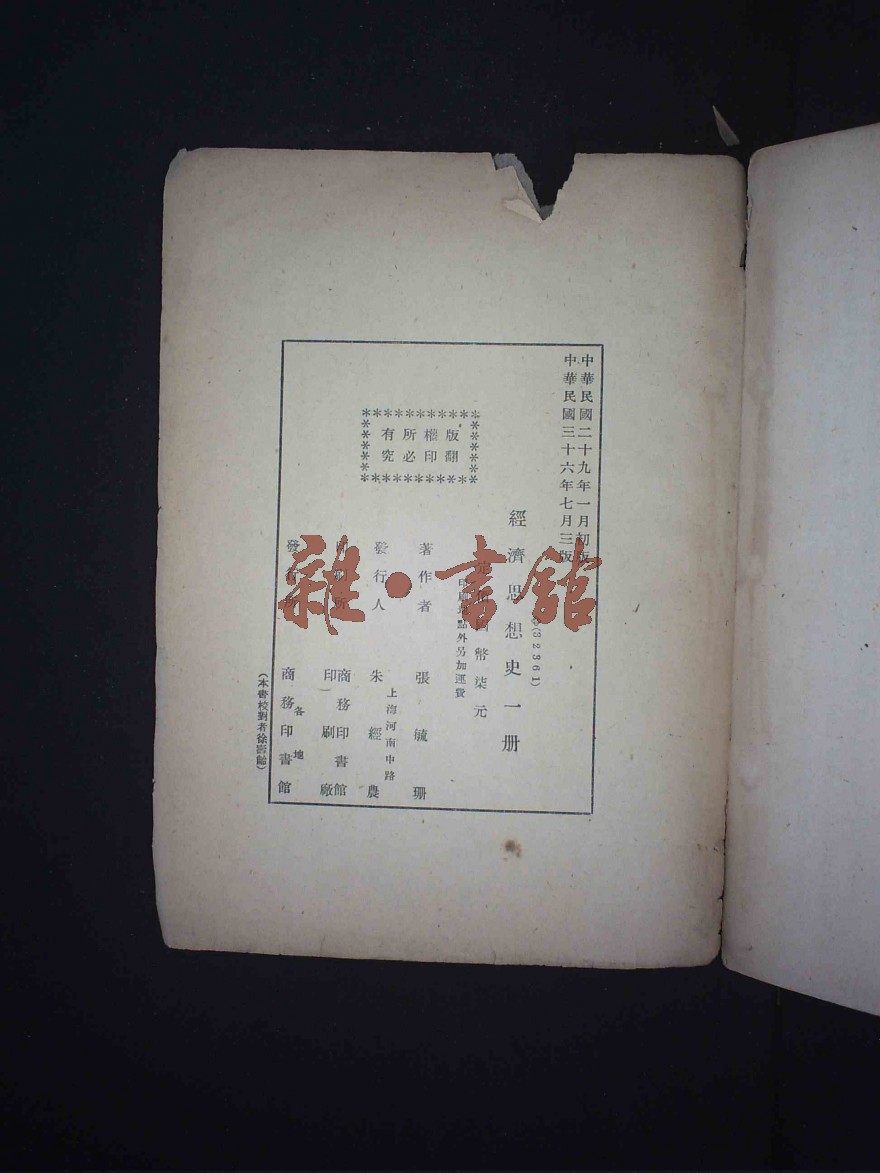 中華民國二十九年一月初版
中華民國三十六年七月三版
(32361)
經濟思想史一冊
定價國幣柒元
印刷地點外另加運費
版權所有
翻印必究
著作者 張毓珊
發行人 朱經農
上海河南中路
印刷所 商務印書館
印刷廠
發行所 商務印書館
各地
(本書校對者徐壽齡)
雜·書館